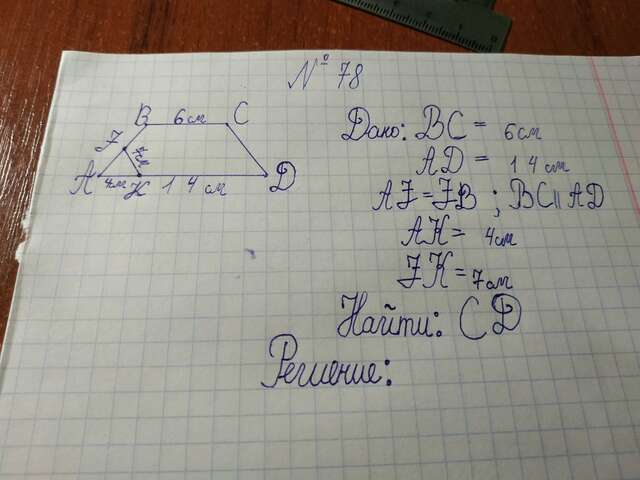 № 78
B 6см C
F 7см
A 4см K 14 см D
Дано: BC = 6см
AD = 14 см
AF = FB ; BC || AD
AK = 4см
FK = 7см
Найти: CD
Решение: